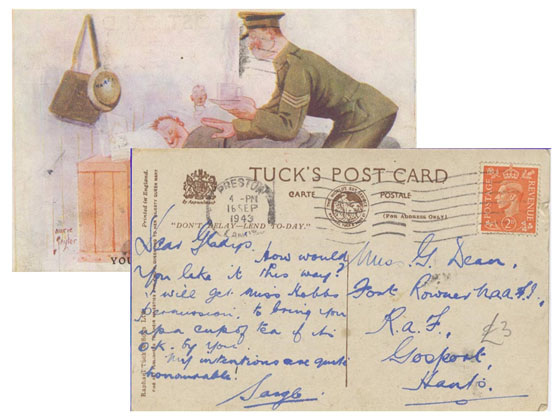 YOU
Printed in England.
TUCK'S POST CARD
CARTE POSTALE
(For Address Only)
PRESTON
4 - PM
16 SEP
1943
"DON'T DELAY-LEND TO-DAY."
POSTAGE
REVENUE
Dear Gladys, How would
you like it this way?
I will get Miss Hobbs
permission to bring you
up a cup of tea if it's
O.K. by you.
My intentions are quite
honourable!
Sarge.
Miss G. Dean,
Fort Rowner Naafi,
R.A.F.,
Gosport,
Hants.
£3